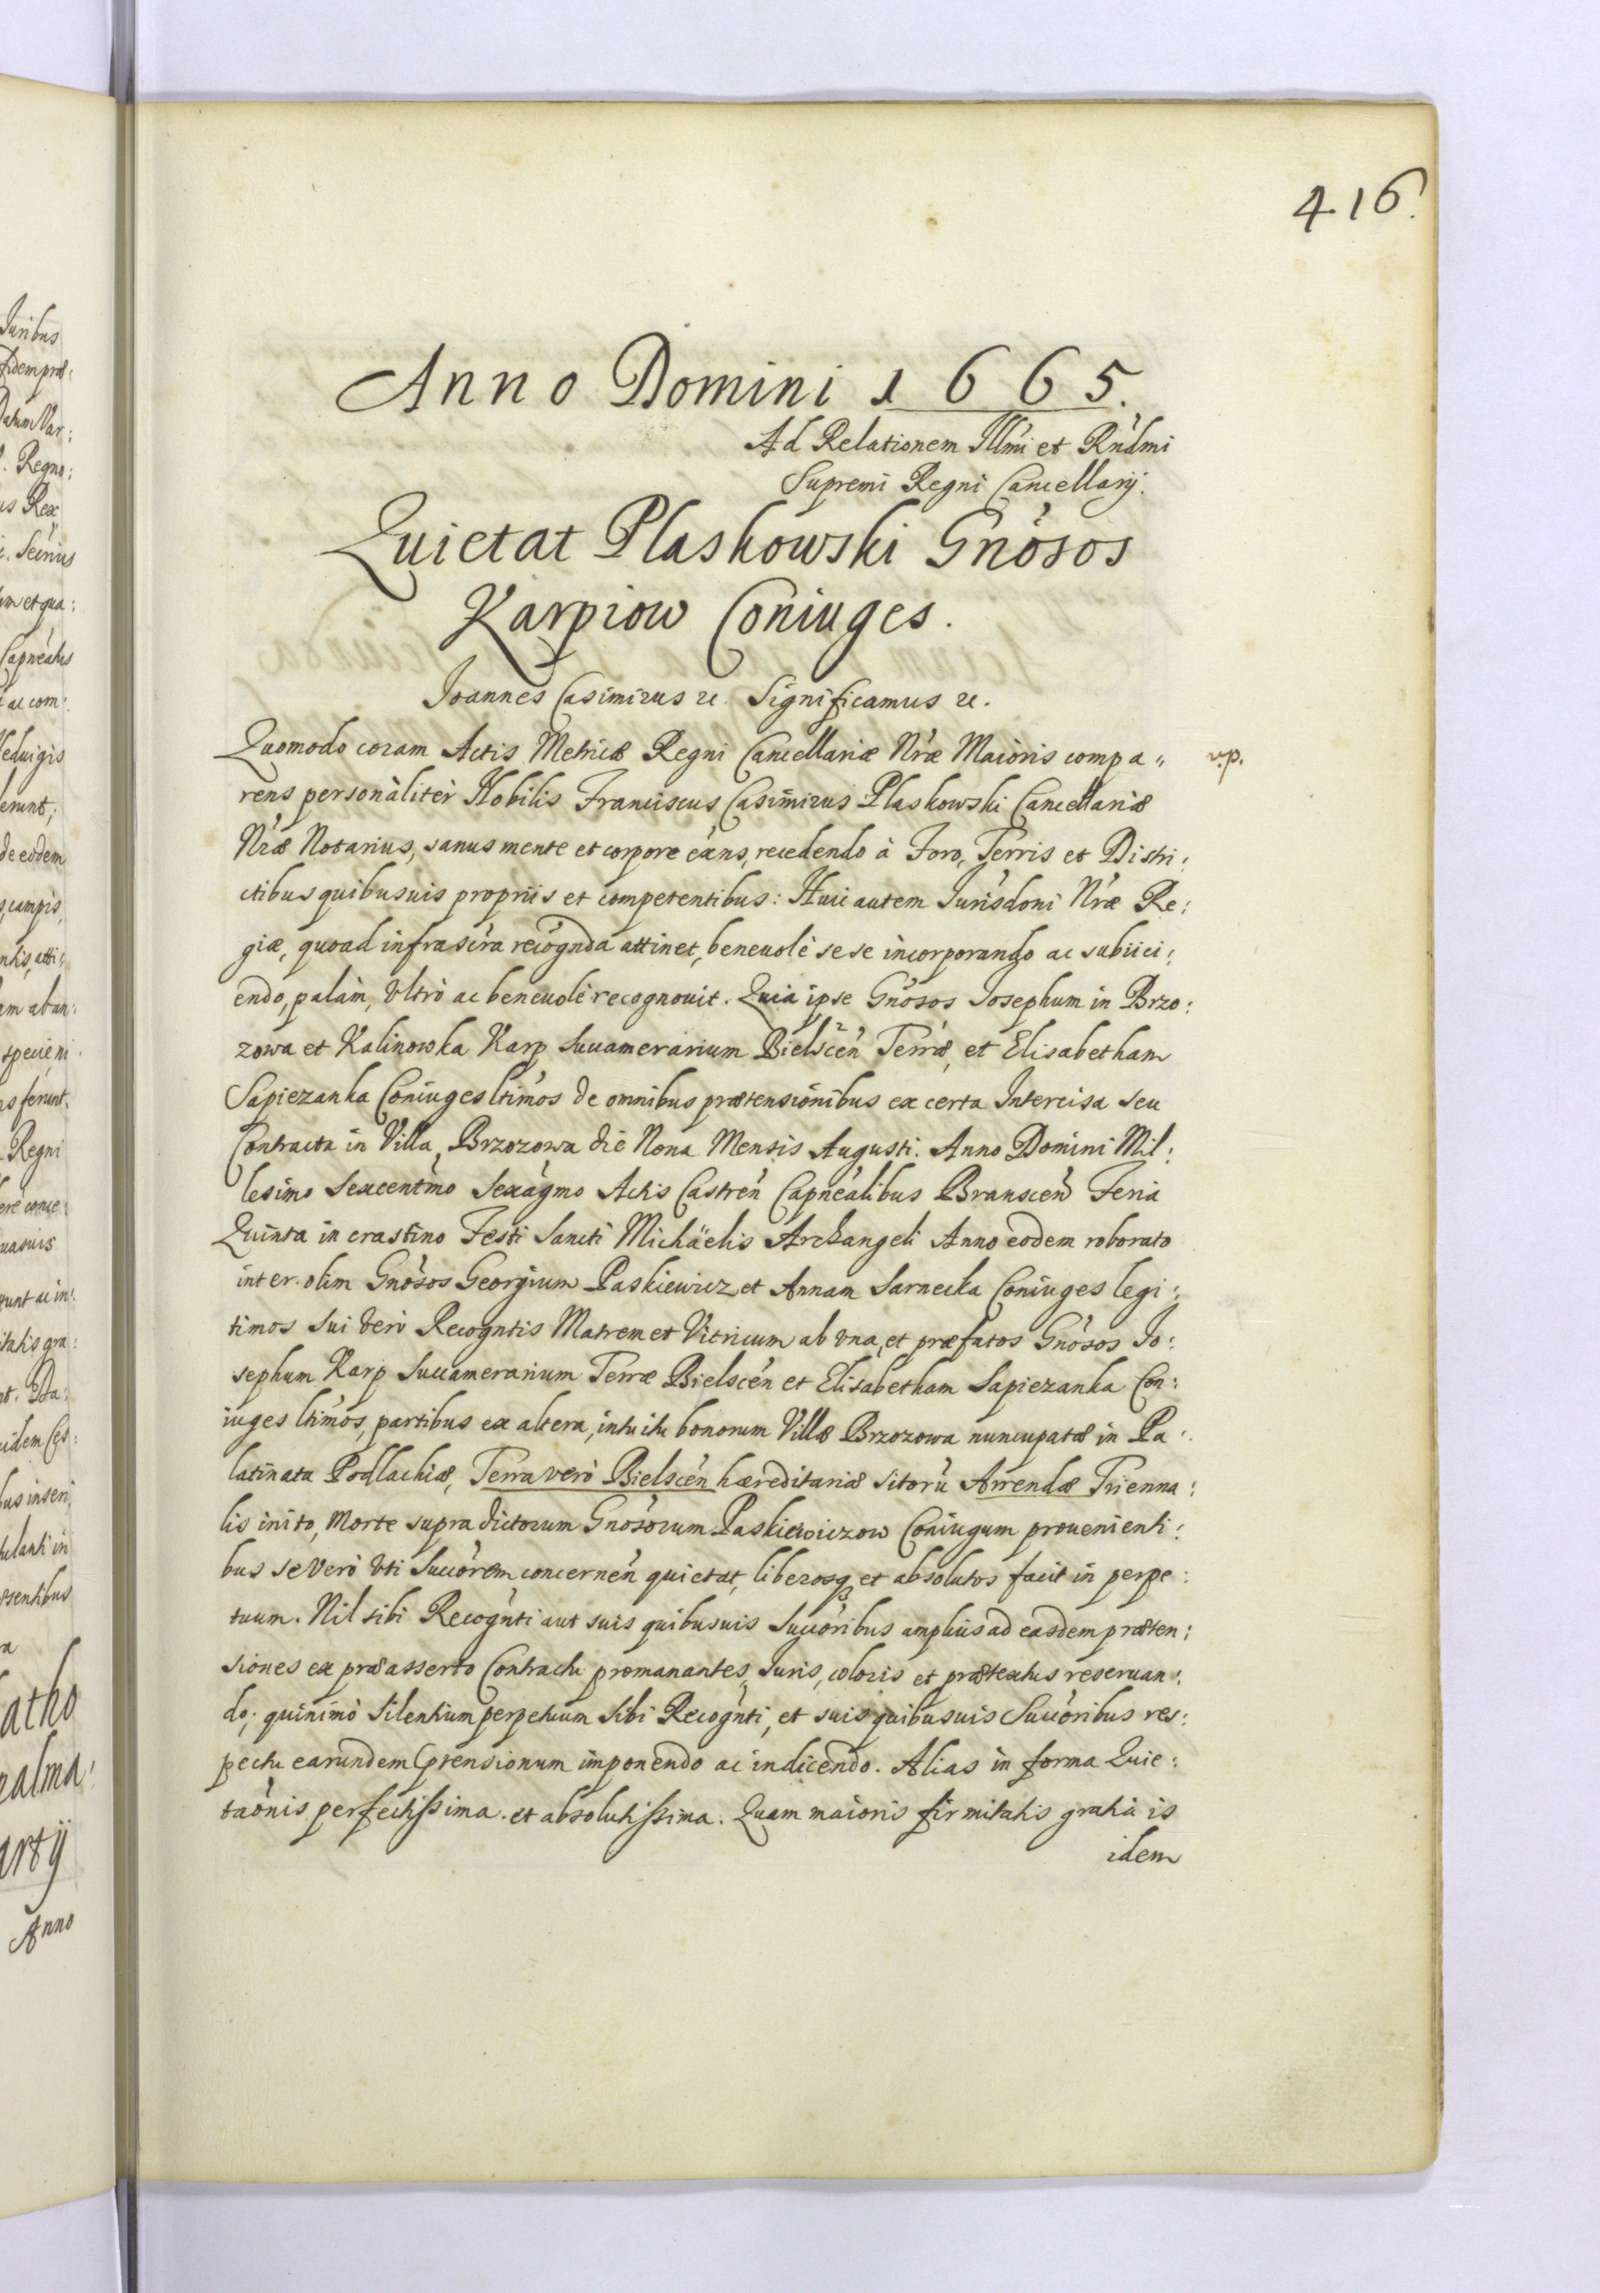 416.
Anno Domini 1665.
Ad Relationem Illm̃i et Rńdmi
Supremi Regni Cancellarij.
Quietat Plaskowski Gnósos
Karpiow Coniuges.
Joannes Casimirus &. Significamus &.
Quomodo coram Actis Metricæ Regni Cancellariæ Nŕæ Maioris compa„
v.p.
rens personalitèr Nobilis Franciscus Casimirus Plaskowski Cancellariæ
Nŕæ Notarius, sanus mente et corpore exńs, recedendo à Foro, Terris et Distri:
ctibus quibusuis proprijs et competentibus: Huic autem Jurisdoni Nŕæ Re:
giæ, quoad infrascŕa recógnda attinet, beneuolè sese incorporando ac subiici:
endo, palàm, Vltrò ac beneuolè recognouit. Quia ipse Gnósos Josephum in Brzo:
zowa et Kalinowka Karp Succamerarium Bielscéń Terræ, et Elisabetham
Sapiezanka Coniuges ltimós de omnibus prætensionibus ex certa Intercisa seu
Contractu in Villa Brzozowa die Nona Mensis Augusti. Anno Domini Mil:
lesimo Sexcentm̃o Sexágmo Actis Castreń Capnéalibus Branscéń Feria
Quinta in crastino Festi Sancti Michäelis Archangeli Anno eodem roborato
inter olim Gnósos Georgium Paskiewicz et Annam Sarnecka Coniuges legi:
timos Sui verò Recogntis Matrem et Vitricum ab vna, et præfatos Gnósos Jo:
sephum Karp Succamerarium Terræ Bielscéń et Elisabetham Sapiezanka Con:
iuges ltimós, partibus ex altera, intuitu bonorum Villæ Brzozowa nuncupatæ in Pa:
latinatu Podlachiæ, Terra verò Bielscéń hæreditariæ sitorũ Arrendæ Trienna:
lis inito, Morte supradictorum Gnósorum Paskiewiczow Coniugum prouenienti:
bus se verò vti Succórem concerneń quietat, liberosq́ et absolutos facit in perpe:
tuum. Nil sibi Recognti aut suis quibusuis Succóribus amplius ad easdem præten:
siones ex præasserto Contractu promanantes, Juris, coloris et prætextus reseruan:
do; quinimò Silentium perpetuum Sibi Recognti, et suis quibusuis Succóribus res:
pectu earundem prensionum imponendo ac indicendo. Alias in forma Quie:
taónis perfectissima. et absolutissima. Quam maioris firmitatis gratia is
idem